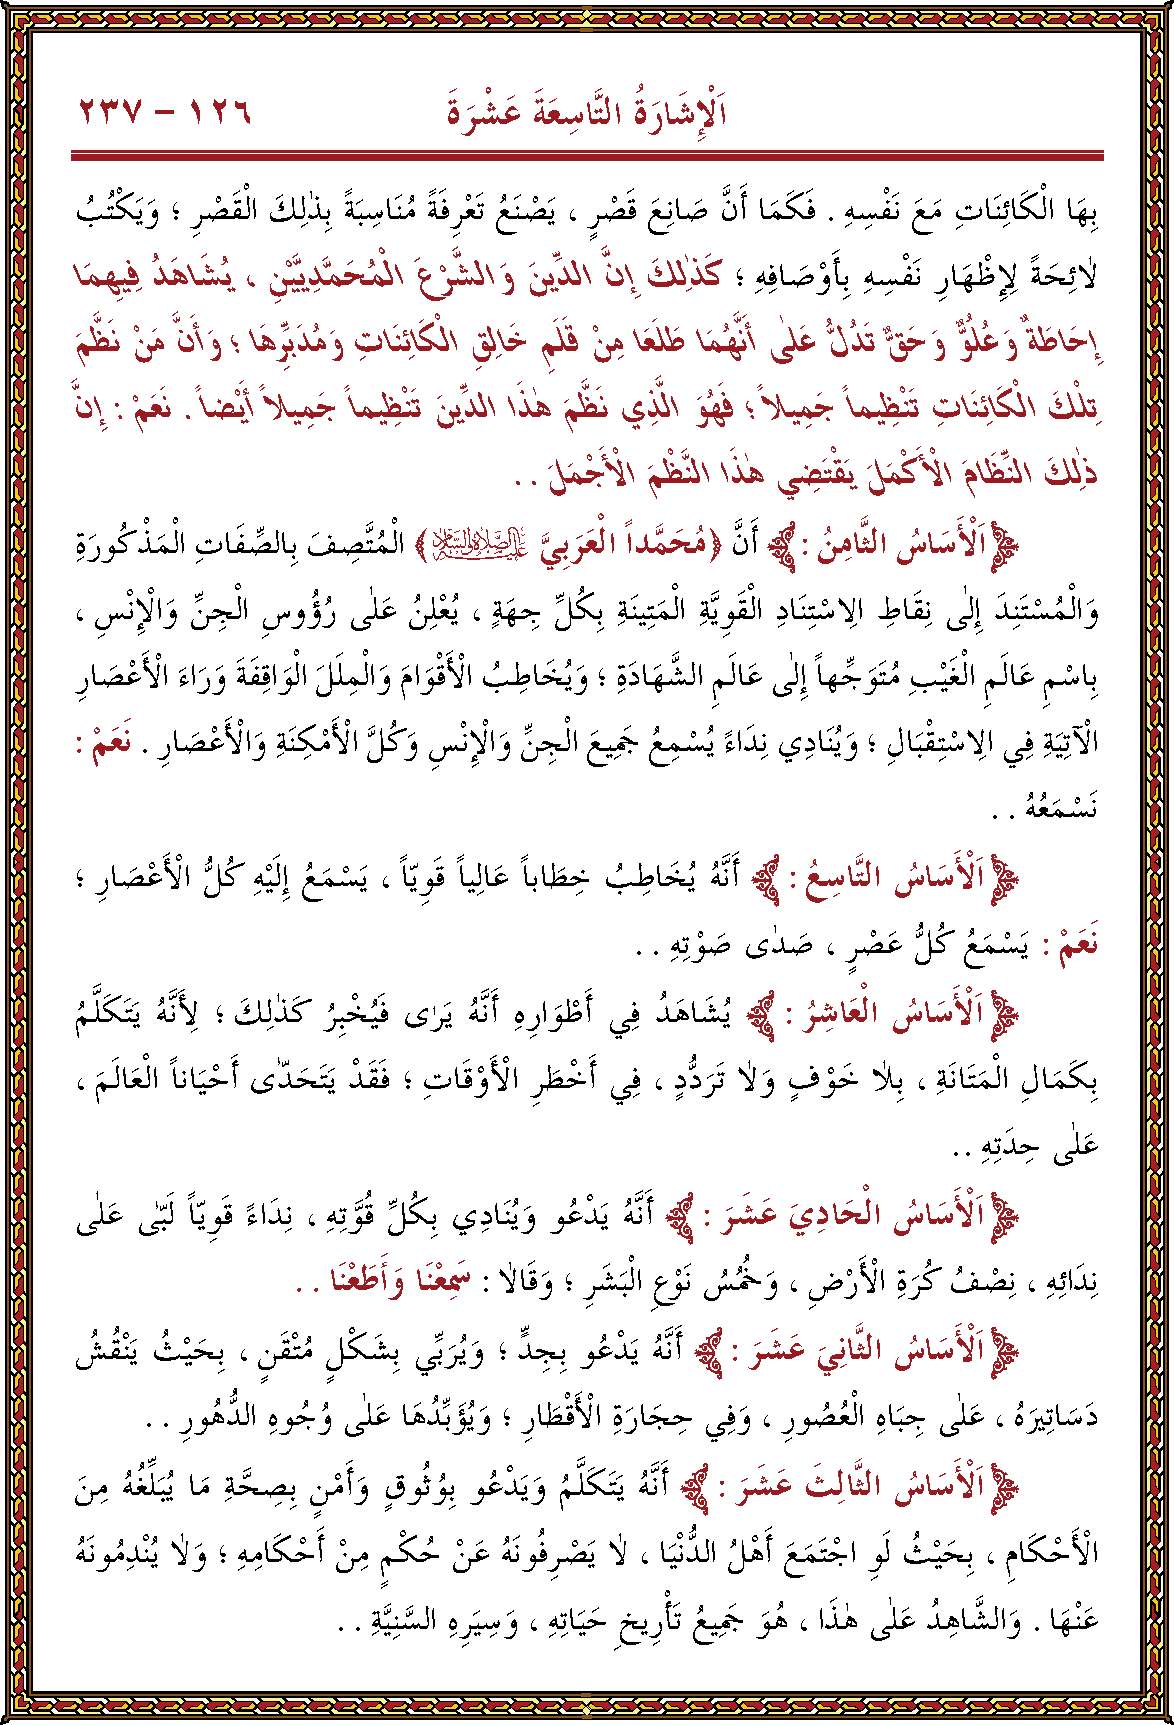 اَلْإِشَارَةُ التَّاسِعَةَ عَشْرَةَ
١٢٦ – ٢٣٧
بِهَا الْكَائِنَاتِ مَعَ نَفْسِهِ . فَكَمَا أَنَّ صَانِعَ قَصْرٍ ، يَصْنَعُ تَعْرِفَةً مُنَاسِبَةً بِذٰلِكَ الْقَصْرِ ؛ وَيَكْتُبُ
لَائِحَةً لِإِظْهَارِ نَفْسِهِ بِأَوْصَافِهِ ؛ كَذٰلِكَ إِنَّ الدِّينَ وَالشَّرْعَ الْمُحَمَّدِيَّيْنِ ، يُشَاهَدُ فِيهِمَا
إِحَاطَةٌ وَعُلُوٌّ وَحَقٌّ تَدُلُّ عَلٰى أَنَّهُمَا طَلَعَا مِنْ قَلَمِ خَالِقِ الْكَائِنَاتِ وَمُدَبِّرِهَا ؛ وَأَنَّ مَنْ نَظَّمَ
تِلْكَ الْكَائِنَاتِ تَنْظِيماً جَمِيلاً ؛ فَهُوَ الَّذِي نَظَّمَ هٰذَا الدِّينَ تَنْظِيماً جَمِيلاً أَيْضاً . نَعَمْ : إِنَّ
ذٰلِكَ النِّظَامَ الْأَكْمَلَ يَقْتَضِي هٰذَا النَّظْمَ الْأَجْمَلَ . .
اَلْأَسَاسُ الثَّامِنُ : أَنَّ ﴿مُحَمَّداً الْعَرَبِيَّ عَلَيْهِ الصَّلَاةُ وَالسَّلَامُ﴾ الْمُتَّصِفَ بِالصِّفَاتِ الْمَذْكُورَةِ
وَالْمُسْتَنِدَ إِلٰى نِقَاطِ الِاسْتِنَادِ الْقَوِيَّةِ الْمَتِينَةِ بِكُلِّ جِهَةٍ ، يُعْلِنُ عَلٰى رُؤُوسِ الْجِنِّ وَالْإِنْسِ ،
بِاسْمِ عَالَمِ الْغَيْبِ مُتَوَجِّهاً إِلٰى عَالَمِ الشَّهَادَةِ ؛ وَيُخَاطِبُ الْأَقْوَامَ وَالْمِلَلَ الْوَاقِفَةَ وَرَاءَ الْأَعْصَارِ
الْآتِيَةِ فِي الِاسْتِقْبَالِ ؛ وَيُنَادِي نِدَاءً يُسْمِعُ جَمِيعَ الْجِنِّ وَالْإِنْسِ وَكُلَّ الْأَمْكِنَةِ وَالْأَعْصَارِ . نَعَمْ :
نَسْمَعُهُ . .
اَلْأَسَاسُ التَّاسِعُ : أَنَّهُ يُخَاطِبُ خِطَاباً عَالِياً قَوِيّاً ، يَسْمَعُ إِلَيْهِ كُلُّ الْأَعْصَارِ ؛
نَعَمْ : يَسْمَعُ كُلُّ عَصْرٍ ، صَدٰى صَوْتِهِ . .
اَلْأَسَاسُ الْعَاشِرُ : يُشَاهَدُ فِي أَطْوَارِهِ أَنَّهُ يَرٰى فَيُخْبِرُ كَذٰلِكَ ؛ لِأَنَّهُ يَتَكَلَّمُ
بِكَمَالِ الْمَتَانَةِ ، بِلَا خَوْفٍ وَلَا تَرَدُّدٍ ، فِي أَخْطَرِ الْأَوْقَاتِ ؛ فَقَدْ يَتَحَدّٰى أَحْيَاناً الْعَالَمَ ،
عَلٰى حِدَتِهِ ..
اَلْأَسَاسُ الْحَادِيَ عَشَرَ : أَنَّهُ يَدْعُو وَيُنَادِي بِكُلِّ قُوَّتِهِ ، نِدَاءً قَوِيّاً لَبّٰى عَلٰى
نِدَائِهِ ، نِصْفُ كُرَةِ الْأَرْضِ ، وَخُمُسُ نَوْعِ الْبَشَرِ ؛ وَقَالَا : سَمِعْنَا وَأَطَعْنَا . .
اَلْأَسَاسُ الثَّانِيَ عَشَرَ : أَنَّهُ يَدْعُو بِجِدٍّ ؛ وَيُرَبِّي بِشَكْلٍ مُتْقَنٍ ، بِحَيْثُ يَنْقُشُ
دَسَاتِيرَهُ ، عَلٰى جِبَاهِ الْعُصُورِ ، وَفِي حِجَارَةِ الْأَقْطَارِ ؛ وَيُؤَبِّدُهَا عَلٰى وُجُوهِ الدُّهُورِ . .
اَلْأَسَاسُ الثَّالِثَ عَشَرَ : أَنَّهُ يَتَكَلَّمُ وَيَدْعُو بِوُثُوقٍ وَأَمْنٍ بِصِحَّةِ مَا يُبَلِّغُهُ مِنَ
الْأَحْكَامِ ، بِحَيْثُ لَوِ اجْتَمَعَ أَهْلُ الدُّنْيَا ، لَا يَصْرِفُونَهُ عَنْ حُكْمٍ مِنْ أَحْكَامِهِ ؛ وَلَا يُنْدِمُونَهُ
عَنْهَا . وَالشَّاهِدُ عَلٰى هٰذَا ، هُوَ جَمِيعُ تَأْرِيخِ حَيَاتِهِ ، وَسِيَرِهِ السَّنِيَّةِ . .